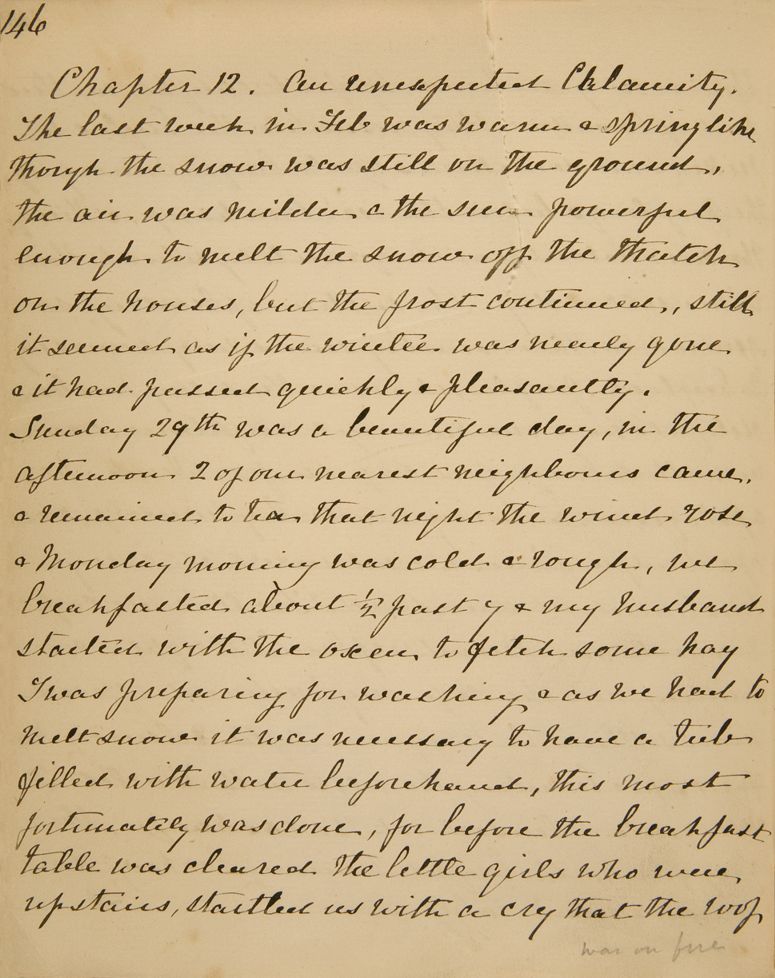 146
Chapter 12. An unexpected Calamity.
The last week in Feb was warm & springlike
though the snow was still on the ground,
the air was milder & the sun powerful
enough to melt the snow off the thatch
on the houses, but the frost continued, still
it seemed as if the winter was nearly gone
& it had passed quickly & pleasantly.
Sunday 29th was a beautiful day, in the
afternoon 2 of our nearest neighbours came,
& remained to tea that night the wind rose
& Monday morning was cold & rough, we
breakfasted about ½ past 7 & my husband
started with the oxen to fetch some hay
I was preparing for washing & as we had to
melt snow it was necessary to have a tub
filled with water beforehand, this most
fortunately was done, for before the breakfast
table was cleared the little girls who were
upstairs, startled us with a cry that the roof
was on fire